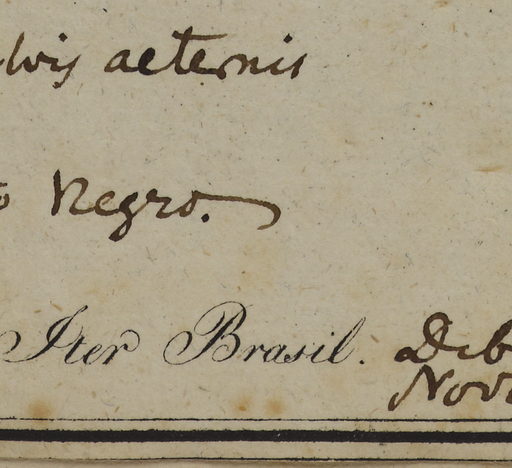 aeternis
Negro.
Iter Brasil. Dcb
Nov